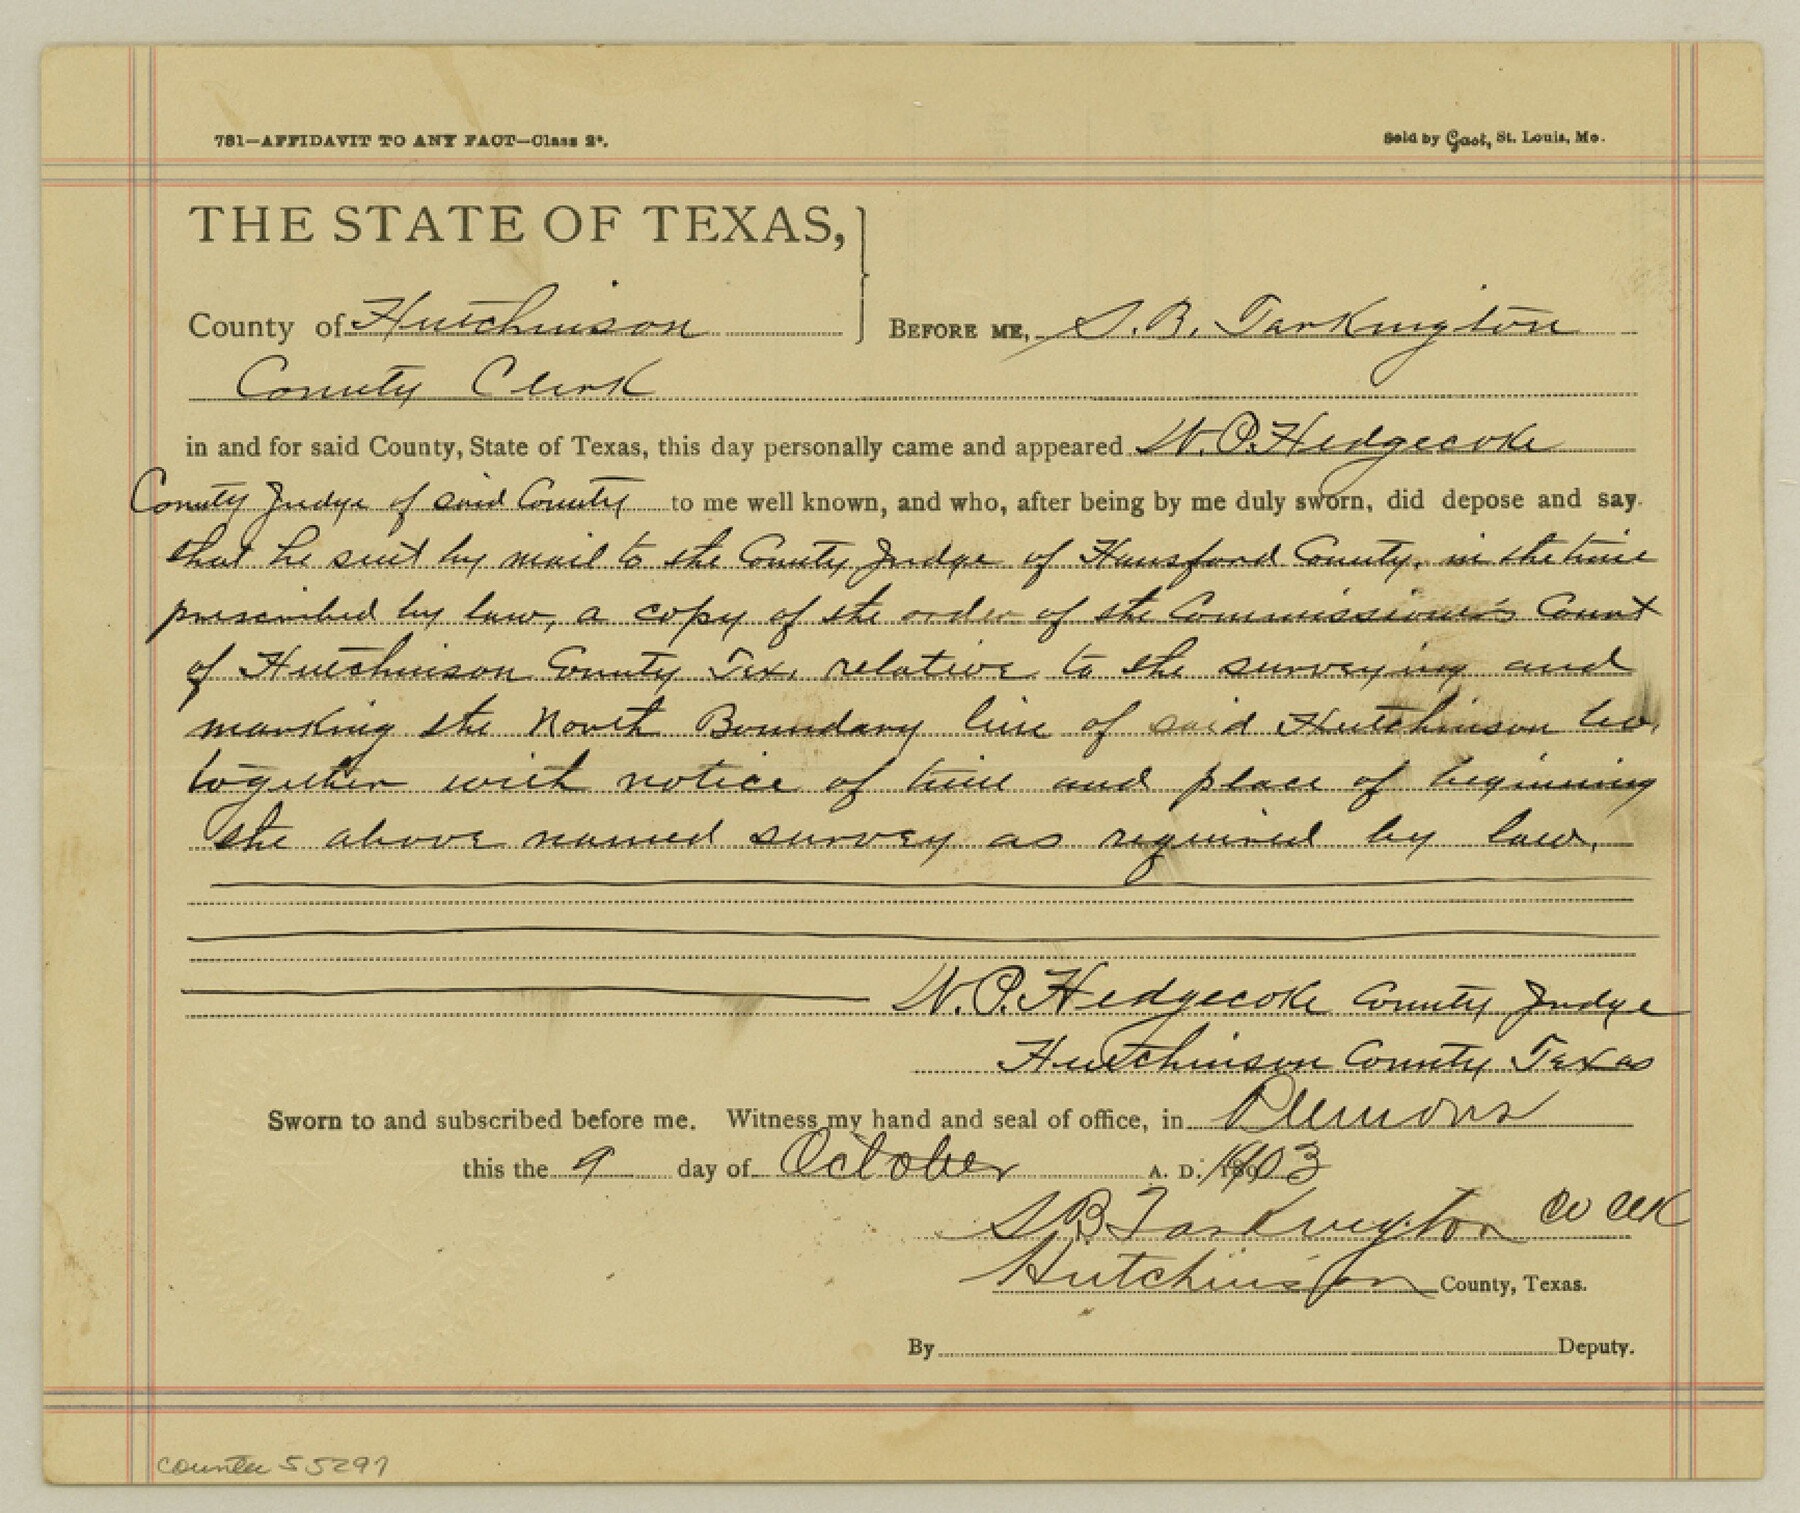 781—AFFIDAVIT TO ANY FACT—Class 2*.
Sold by Gast, St. Louis, Mo.
THE STATE OF TEXAS,
County of Hutchinson
BEFORE ME, S. B. Tarkington
County Clerk
in and for said County, State of Texas, this day personally came and appeared W. P. Hedgecoke
County Judge of said County to me well known, and who, after being by me duly sworn, did depose and say.
that he sent by mail to the County Judge of Hansford County, in the time
prescribed by law, a copy of the order of the Commissioner's Court
of Hutchinson County Tex. relative to the surveying and
marking the North Boundary line of said Hutchinson Co.
together with notice of time and place of beginning
the above named survey as required by law.
W. P. Hedgecoke County Judge
Hutchinson County Texas
Sworn to and subscribed before me. Witness my hand and seal of office, in Plemons
this the 9 day of October A. D. 1903
S B Tarkington Co Clk
Hutchinson County, Texas.
By Deputy.
counter 55297